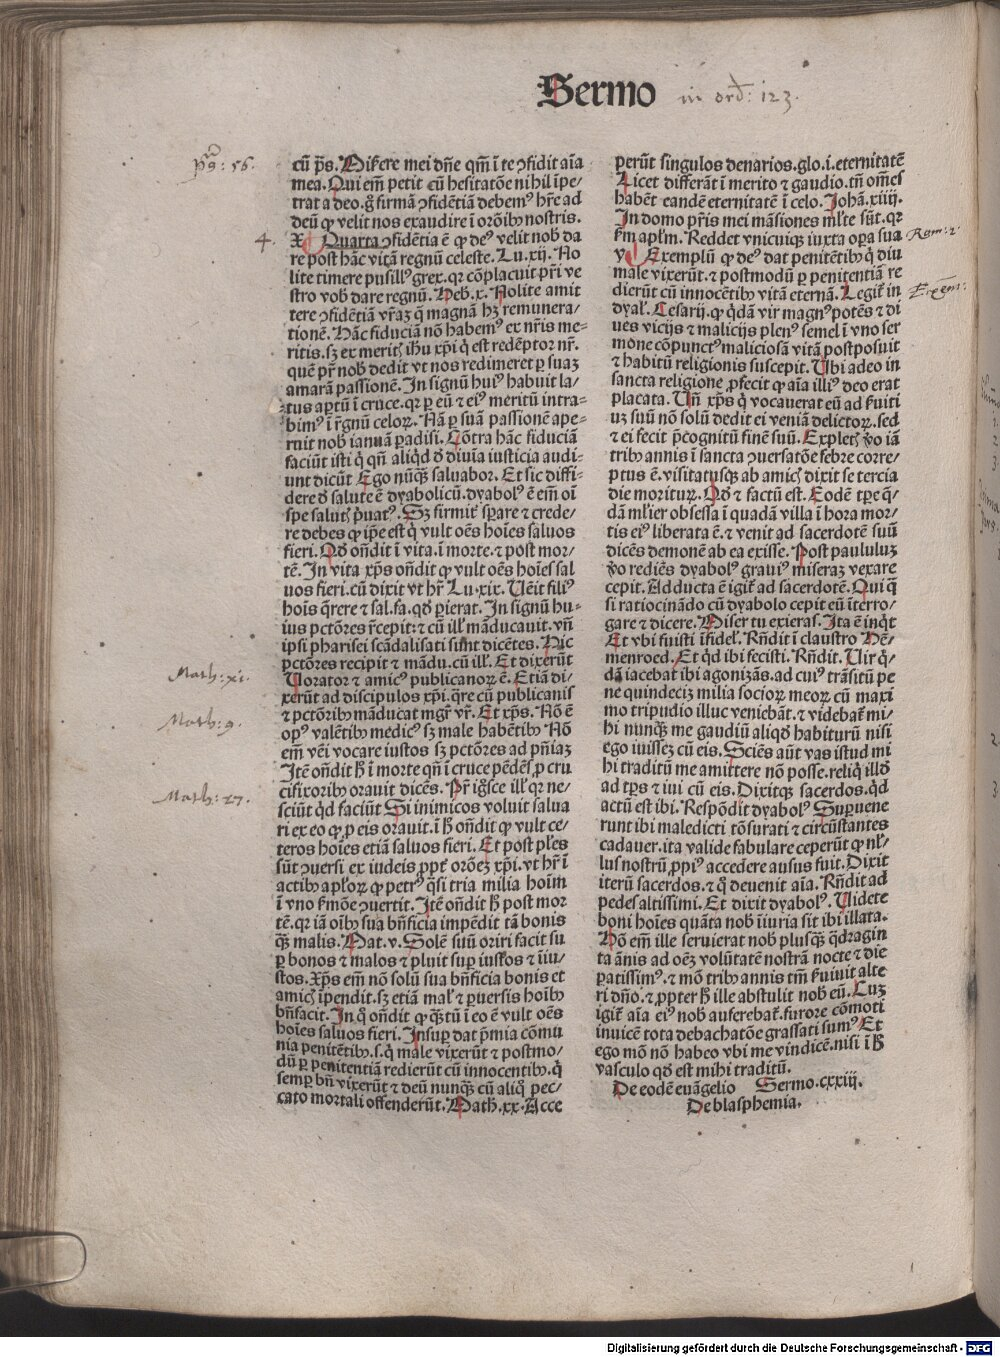 Sermo in ord: 123.
ps: 56.
cũ p̃s. Miserere mei dñe qm̃ ĩ te ꝯfidit aĩa
mea. Qui em̃ petit cũ hesitatõe nihil ĩpe⸗
trat a deo. gͦ firmã ꝯfidẽtiã debemꝰ hr̃e ad
deũ ꝙ velit nos exaudire ĩ orõibꝰ nostris.
4.
X Quarta ꝯfidẽtia ẽ ꝙ deꝰ velit nob̃ da
re post hãc vitã regnũ celeste. Lu. xij. No
lite timere pusillꝰ grex. qꝛ cõplacuit pr̃i ve
stro vob̃ dare regnũ. Heb̃. x. Nolite amit
tere ꝯfidẽtiã vr̃aꝫ q̃ magnã hꝫ remunera⸗
tionẽ. Hãc fiduciã nõ habemꝰ ex nr̃is me⸗
ritis. sꝫ ex merit̃ ihũ xp̃i q̇ est redẽptor nr̃.
quẽ pr̃ nob̃ dedit vt nos redimeret ꝑ suaꝫ
amarã passionẽ. In signũ huiꝰ habuit la⸗
tus aꝑtũ ĩ cruce. qꝛ ꝑ eũ ⁊ eiꝰ meritũ intra⸗
bimꝰ ĩ r̃gnũ celoꝝ. Nã ꝑ suã passionẽ ape⸗
ruit nob̃ ianuã ꝑadisi. Cõtra hãc fiduciã
faciũt isti q̇ qñ aliqḋ ð diuĩa iusticia audi⸗
unt dicũt Ego nũq̃ꝫ saluabor. Et sic diffi⸗
dere ð salute ẽ dyabolicũ. dyabolꝰ ẽ em̃ oĩ
spe salut̃ p̃uatꝰ. Sꝫ firmit̃ sꝑare ⁊ crede⸗
re debes ꝙ ip̃e est q̇ vult oẽs hoĩes saluos
fieri. Qð oñdit ĩ vita. ĩ morte. ⁊ post mor⸗
tẽ. In vita xp̃s oñdit ꝙ vult oẽs hoĩes sal
uos fieri. cũ dixit vt hr̃ Lu. xix. Uẽit filiꝰ
hoĩs q̃rere ⁊ sal. fa. qð ꝑierat. In signũ hu⸗
ius pctõres r̃cepit: ⁊ cũ ill̃ mãducauit. vñ
ipsi pharisei scãdalisati sunt dicẽtes. Hic
Math: xi.
pctõres recipit ⁊ mãdu. cũ ill̃. Et dixerũt
Uorator ⁊ amicꝰ publicanoꝝ ẽ. Etiã di⸗
xerũt ad discipulos xp̃i. q̃re cũ publicanis
Math: 9.
⁊ pctõribꝰ mãducat mgr̃ vr̃. Et xp̃s. Nõ ẽ
opꝰ valẽtibꝰ medicꝰ sꝫ male habẽtibꝰ Nõ
em̃ vẽi vocare iustos sꝫ pctõres ad pñiaꝫ
Itẽ oñdit ħ ĩ morte qñ ĩ cruce pẽdẽs ꝓ cru
Math: 27.
cifixoribꝰ orauit dicẽs. Pr̃ ig̃sce ill̃ qꝛ ne⸗
sciũt qḋ faciũt Si inimicos voluit salua
ri ex eo ꝙ ꝓ eis orauit. ĩ ħ oñdit ꝙ vult ce⸗
teros hoĩes etiã saluos fieri. Et post pl̃es
sũt ꝯuersi ex iudeis ꝓpt̃ orõeꝫ xp̃i. vt hr̃ ĩ
actibꝰ apl̃oꝝ ꝙ petrꝰ q̃si tria milia hoĩm
ĩ vno ẛmõe ꝯuertit. Itẽ oñdit ħ post mor
tẽ. qꝛ iã oĩbꝰ sua bñficia impẽdit tã bonis
q̃ꝫ malis. Mat. v. Solẽ suũ oriri facit su
ꝑ bonos ⁊ malos ⁊ pluit suꝑ iustos ⁊ ĩiu⸗
stos. Xp̃s em̃ nõ solũ sua bñficia bonis et
amic̃ ĩpendit. sꝫ etiã mal̃ ⁊ ꝑuersis hoĩbꝰ
bñfacit. In q̇ oñdit ꝙ q̃ꝫtũ ĩ eo ẽ vult oẽs
hoĩes saluos fieri. Insuꝑ dat p̃mia cõmu
nia penitẽtibꝰ. s. q̇ male vixerũt ⁊ postmo⸗
dũ ꝑ penitentiã redierũt cũ innocentibꝰ. q̇
semꝑ bñ vixerũt ⁊ deũ nunq̃ꝫ cũ aliq̇ pec⸗
cato mortali offenderũt. Math̃. xx. Acce
perũt singulos denarios. glo. i. eternitatẽ
Licet differãt ĩ merito ⁊ gaudio. tñ om̃es
habẽt eandẽ eternitatẽ ĩ celo. Johã. xiiij.
In domo pr̃is mei mãsiones ml̃te sũt. qꝛ
ẛm apl̃m. Reddet vnicuiqꝫ iuxta oꝑa sua Rom: 2.
V Exemplũ ꝙ deꝰ dat penitẽtibꝰ q̇ diu
male vixerũt. ⁊ postmodũ ꝑ penitentiã re Exem:
dierũt cũ innocẽtibꝰ vitã eternã. Legit̃ in
dyal̃. Cesarij. ꝙ q̇dã vir magnꝰ potẽs ⁊ di
ues vicijs ⁊ malicijs plenꝰ semel ĩ vno ser
mone cõpunctꝰ maliciosã vitã postposuit
⁊ habitũ religionis suscepit. Ubi adeo in
sancta religione ꝓfecit ꝙ aĩa illiꝰ deo erat
placata. Uñ xp̃s q̇ vocauerat eũ ad ẛuiti
uꝫ suũ nõ solũ dedit ei veniã delictoꝝ. sed
⁊ ei fecit p̃cognitũ finẽ suũ. Explet̃ ṽo iã
tribꝰ annis ĩ sancta ꝯuersatõe febre corre⸗
ptus ẽ. visitatusqꝫ ab amic̃ dixit se tercia
die moriturꝫ. Qð ⁊ factũ est. Eodẽ tꝑe q̃⸗
dã ml̃ier obsessa ĩ quadã villa ĩ hora mor⸗
tis eiꝰ liberata ẽ. ⁊ venit ad sacerdotẽ suũ
dicẽs demonẽ ab ea exisse. Post paululuꝫ
ṽo rediẽs dyabolꝰ grauiꝰ miseraꝫ vexare
cepit. Adducta ẽ igit̃ ad sacerdotẽ. Qui q̃
si ratiocinãdo cũ dyabolo cepit eũ ĩterro⸗
gare ⁊ dicere. Miser tu exieras. Ita ẽ inq̇t
Et vbi fuisti ĩfidel̃. Rñdit ĩ claustro He⸗
menroed. Et qḋ ibi fecisti. Rñdit. Uir q̇⸗
dã iacebat ibi agonizãs. ad cuiꝰ trãsitũ pe
ne quindeciꝫ milia socioꝝ meoꝝ cũ maxi
mo tripudio illuc veniebãt. ⁊ videbat̃ mi⸗
hi nunq̃ꝫ me gaudiũ aliqḋ habiturũ nisi
ego iuissez cũ eis. Sciẽs aũt vas istud mi
hi traditũ me amittere nõ posse. reliq̇ illð
ad tꝑs ⁊ iui cũ eis. Dixitqꝫ sacerdos. qḋ
actũ est ibi. Respõdit dyabolꝰ Suꝑuene
runt ibi maledicti tõsurati ⁊ circũstantes
cadauer. ita valide fabulare ceperũt ꝙ nl̃⸗
lus nostrũ ꝓpiꝰ accedere ausus fuit. Dixit
iterũ sacerdos. ⁊ q̊ deuenit aĩa. Rñdit ad
pedes altissimi. Et dixit dyabolꝰ. Uidete
boni hoĩes quãta nob̃ ĩiuria sit ibi illata.
Nõ em̃ ille seruierat nob̃ plusq̃ꝫ q̇dragin
ta ãnis ad oẽꝫ volũtatẽ nostrã nocte ⁊ die
ꝑatissimꝰ. ⁊ mõ tribꝰ annis tm̃ ẛuiuit alte
ri dño. ⁊ ꝓpter ħ ille abstulit nob̃ eũ. Cuꝫ
igit̃ aĩa eiꝰ nob̃ auferebat̃. furore cõmoti
inuicẽ tota debachatõe grassati sumꝰ Et
ego mõ nõ habeo vbi me vindicẽ. nisi ĩ ħ
vasculo qð est mihi traditũ.
De eodẽ euãgelio Sermo. cxxiij.
De blasphemia.
Digitalisierung gefördert durch die Deutsche Forschungsgemeinschaft - DFG